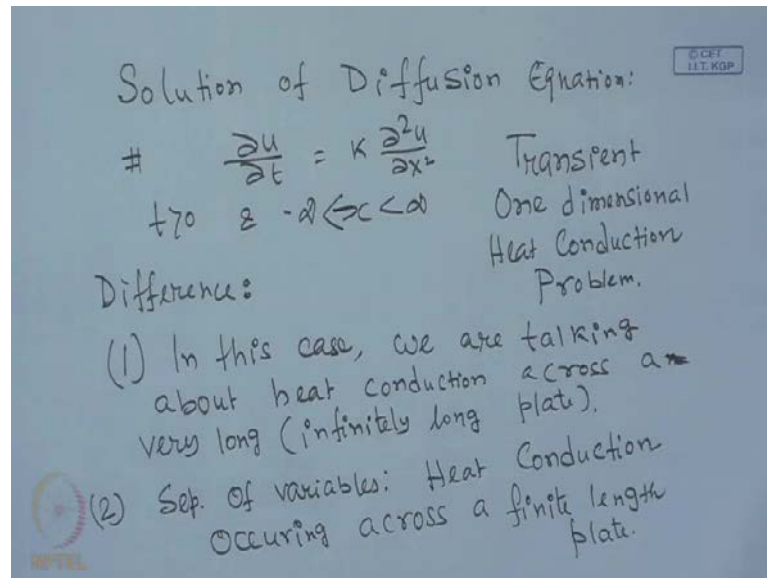 © CET
I.I.T. KGP
Solution of Diffusion Equation:
# ∂u/∂t = K ∂²u/∂x² Transient
t>0 & -∞<x<∞ One dimensional
Heat Conduction
Problem.
Difference:
(1) In this case, we are talking
about heat conduction across a
very long (infinitely long plate).
(2) Sep. of variables: Heat Conduction
Occuring across a finite length
plate.
NPTEL